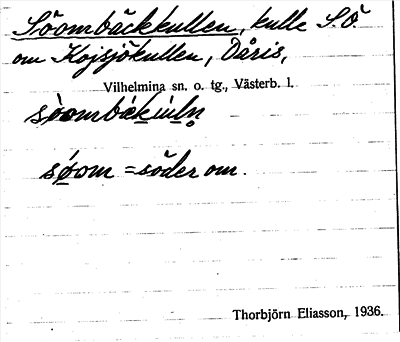 Söombäckkullen, kulle S.Ö.
om Kojsjökullen, Dåris,
Vilhelmina sn. o. tg., Västerb. l.
söom = söder om.
Thorbjörn Eliasson, 1936.